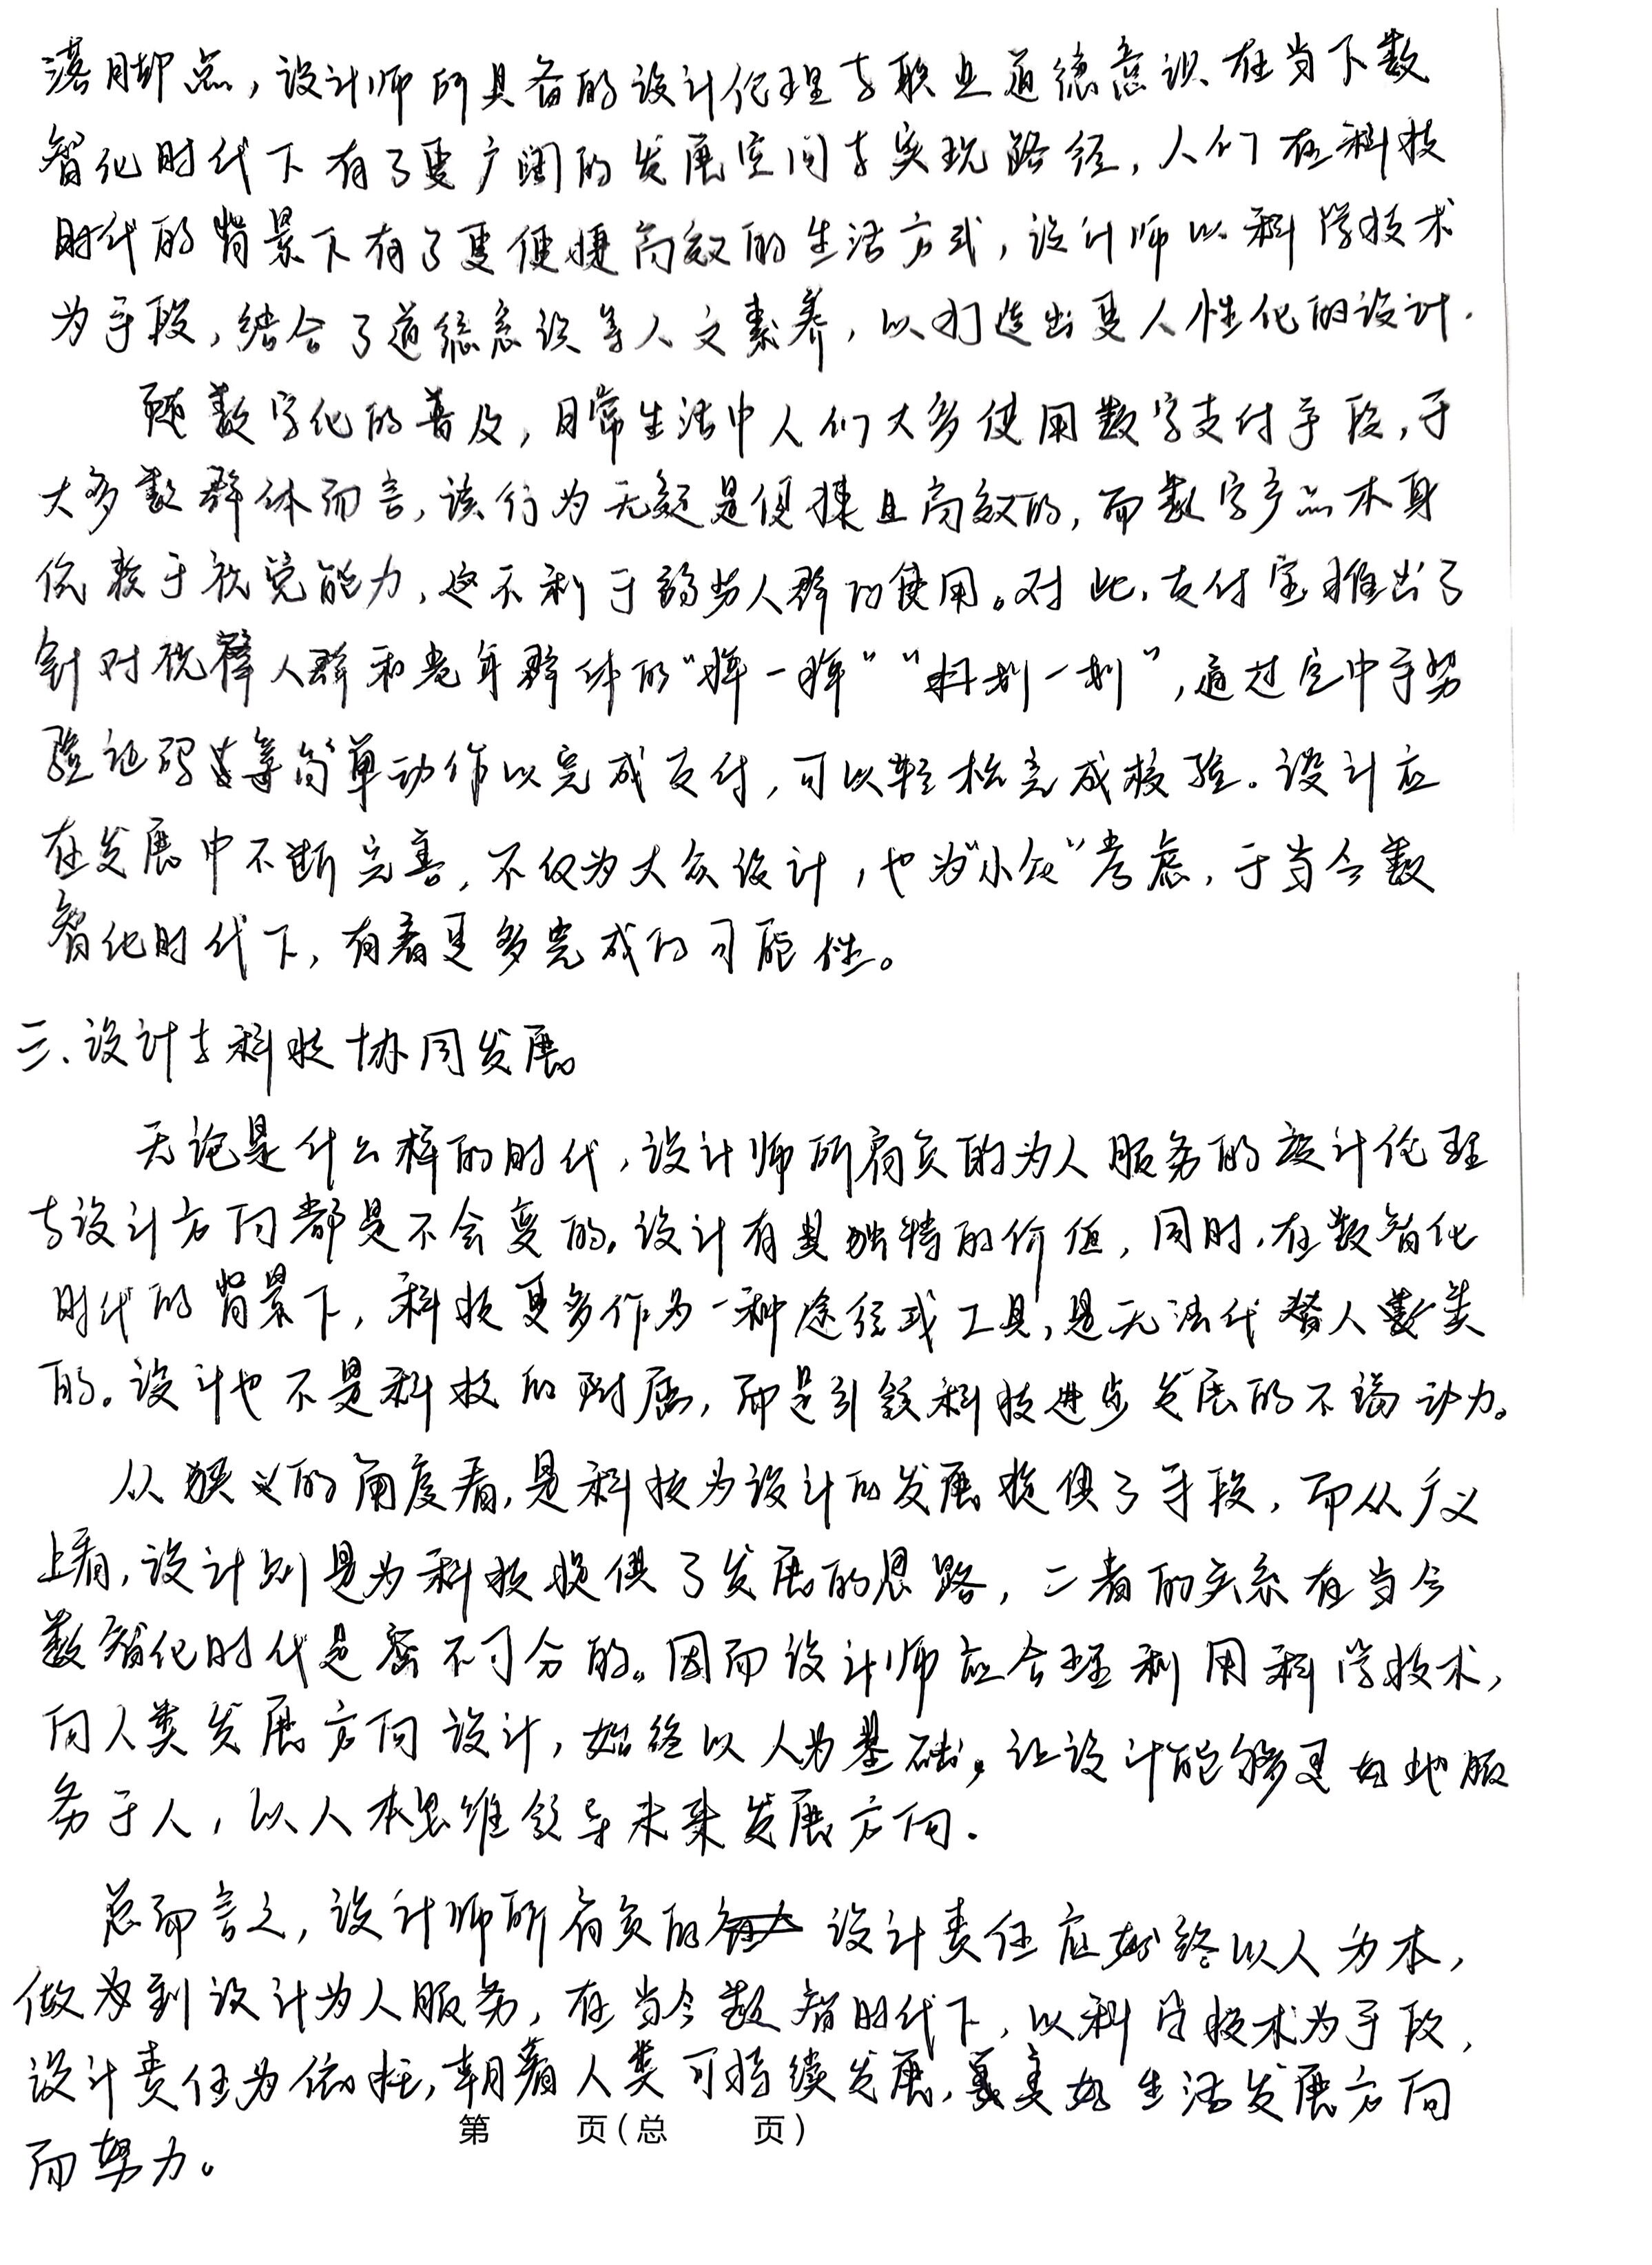 落脚点，设计师所具备的设计伦理与职业道德意识、在当下数
智化时代下有了更广阔的发展空间与实现路径，人们在科技
时代的背景下有了更便捷高效的生活方式，设计师以科学技术
为手段，结合了道德意识等人文素养，以打造出更人性化的设计.
随数字化的普及，日常生活中人们大多使用数字支付手段，于
大多数群体而言，该行为无疑是便捷且高效的，而数字产品本身
依赖于视觉能力，这不利于弱势人群的使用。对此，支付宝推出了
针对视障人群和老年群体的“挥一挥”“划一划”，通过空中手势
验证码等简单动作以完成支付，可以轻松完成核验。设计应
在发展中不断完善，不仅为大众设计，也为“小众”考虑，于当今数
智化时代下，有着更多完成的可能性。
三、设计与科技协同发展
无论是什么样的时代，设计师所肩负的为人服务的设计伦理
与设计方向都是不会变的。设计有其独特的价值，同时，在数智化
时代的背景下，科技更多作为一种途径或工具，是无法代替人类
的。设计也不是科技的附属，而是引领科技进步发展的不竭动力。
从狭义的角度看，是科技为设计的发展提供了手段，而从广义
上看，设计则是为科技提供了发展的思路，二者的关系在当今
数智化时代是密不可分的。因而设计师应合理利用科学技术，
向人类发展方向设计，始终以人为基础，让设计能够更好地服
务于人，以人本思维领导未来发展方向.
总而言之，设计师所肩负的设计责任应始终以人为本，
做到设计为人服务，在当今数智时代下，以科学技术为手段，
设计责任为依托，朝着人类可持续发展，美好生活发展方向
第 页（总 页）
而努力。